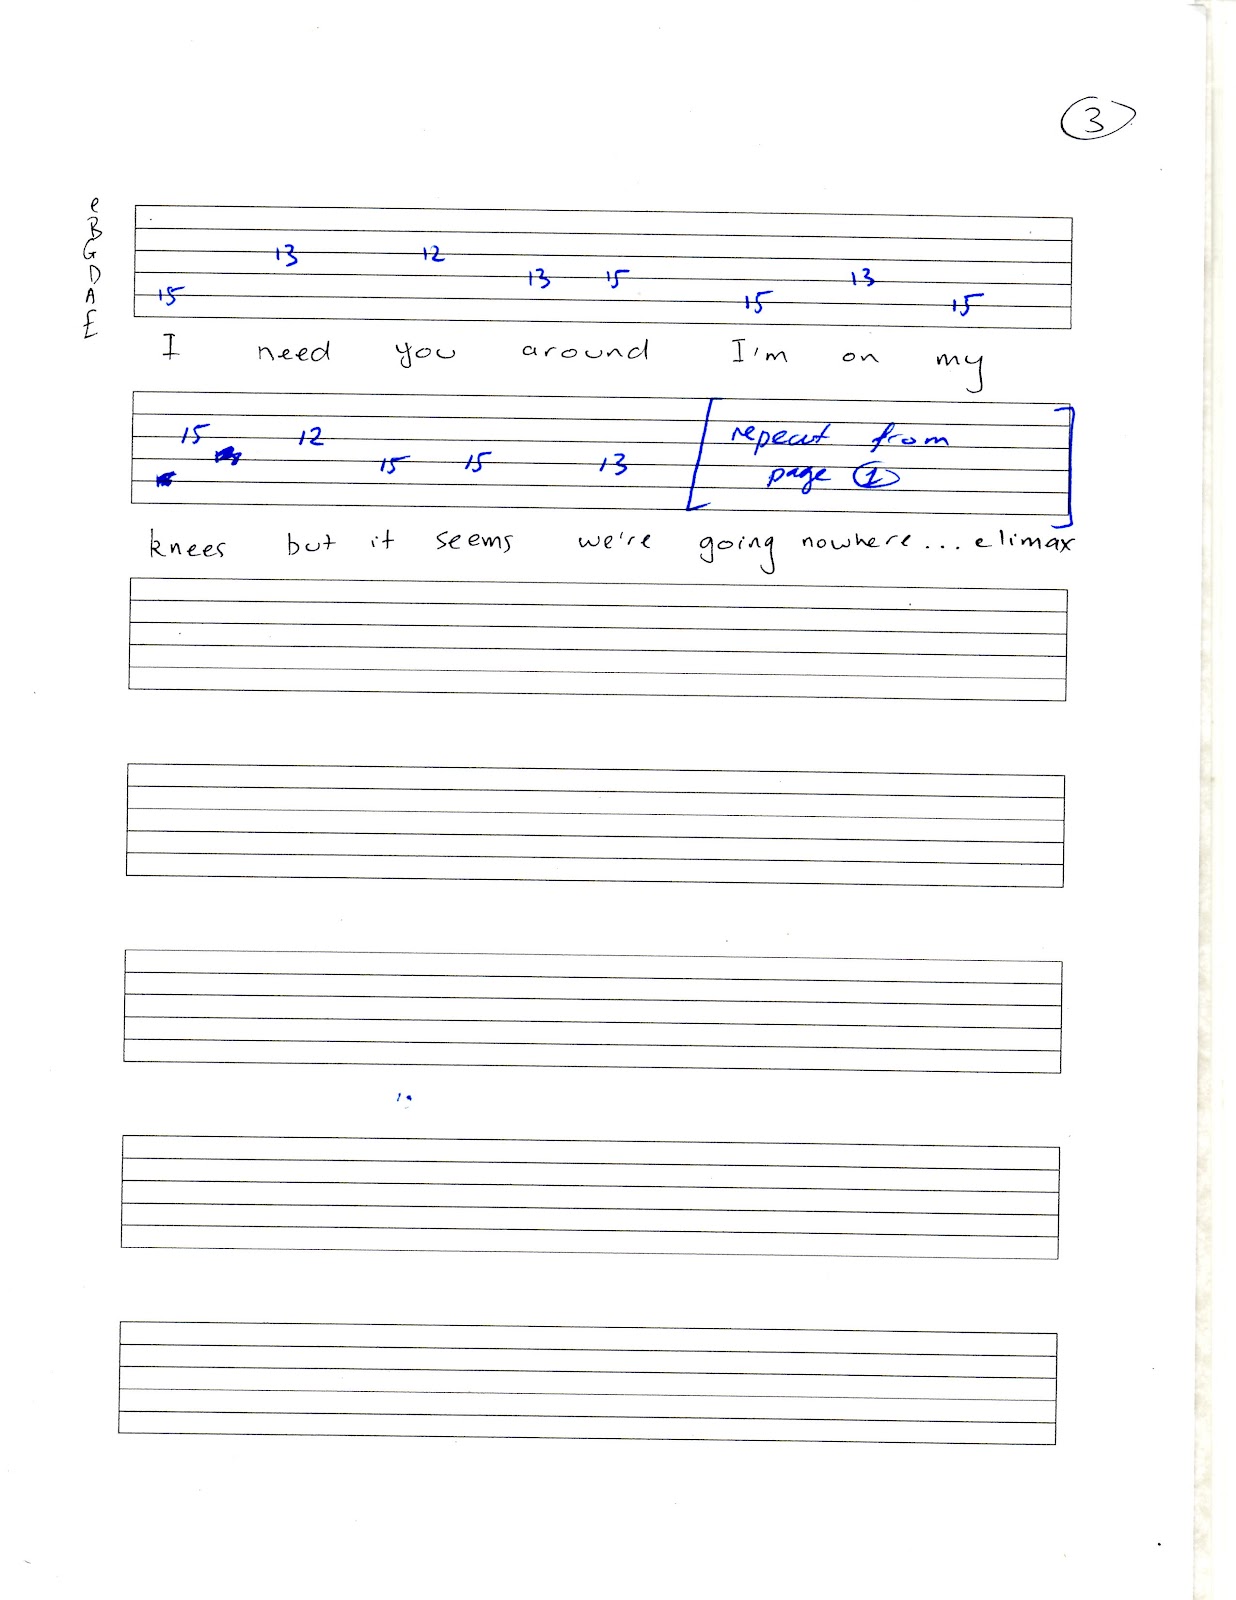 3
e
B
G
D
A
E
13 12
13 15 13
15 15 15
I need you around I'm on my
15 12 repeat from
15 15 13 page 1
knees but it seems we're going nowhere... climax